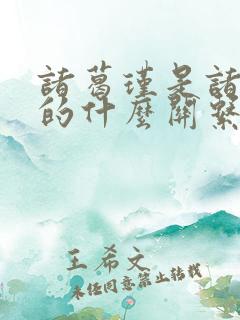 諸葛瑾是諸
的什麼關繫
王希文
未經同意禁止轉載